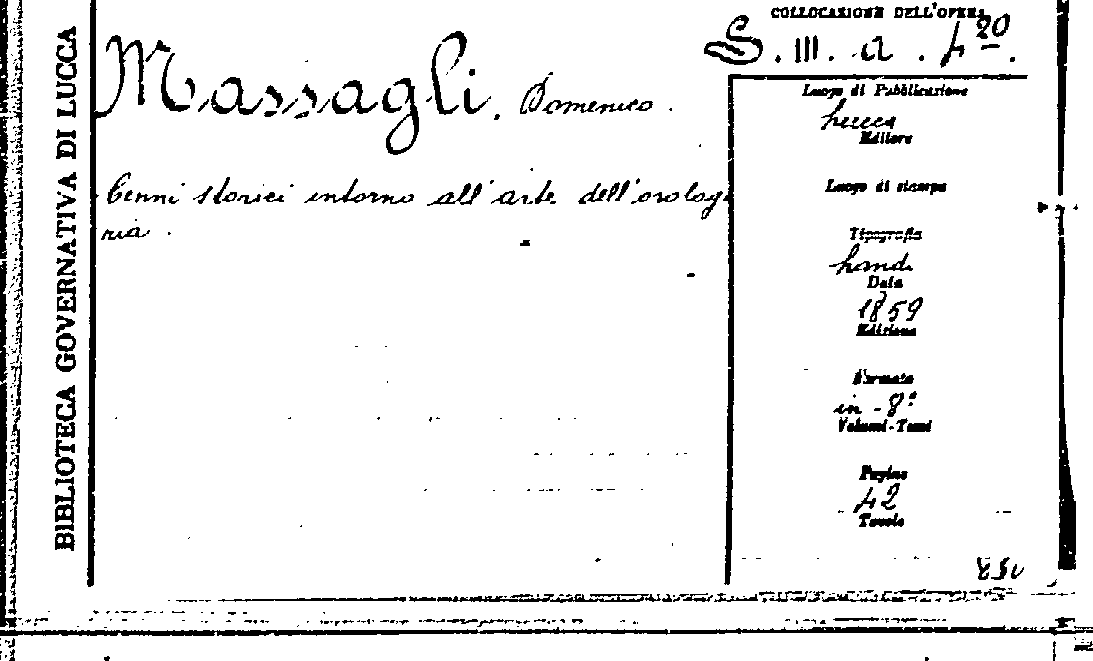 BIBLIOTECA GOVERNATIVA DI LUCCA
Massagli. Domenico.
Cenni storici intorno all'arte dell'orologe
ria.
COLLOCAZIONE DELL'OPERA
S. III. a. 4 20.
Luogo di Pubblicazione
Lucca
Editore
Luogo di stampa
Tipografia
Land.
Data
1859
Edizione
Formato
in-8°
Volumi-Tomi
Pagine
42
Tavole